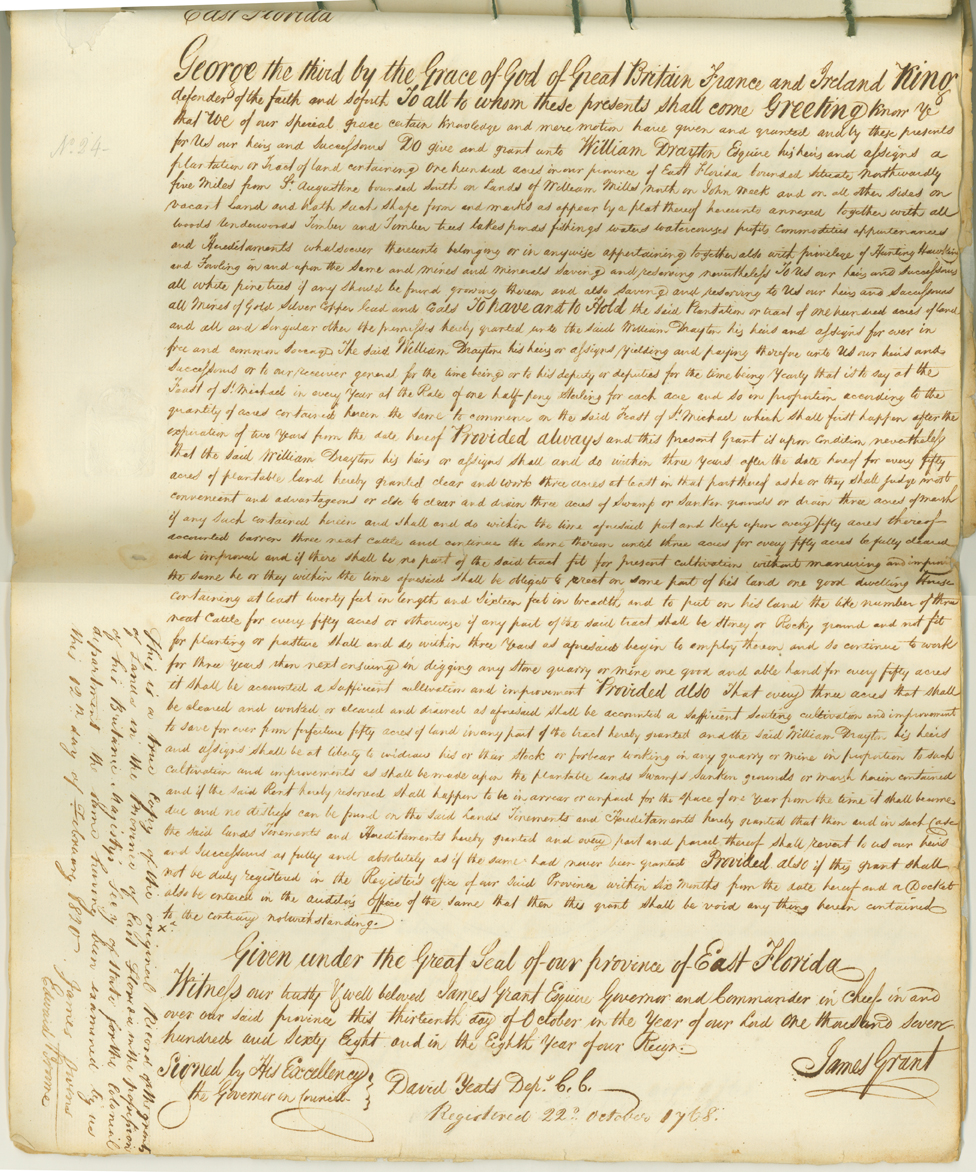 East Florida
George the third by the Grace of God of Great Britain France and Ireland King
defender of the faith and soforth To all to whom these presents shall come Greeting know Ye
that We of our special grace certain knowledge and mere motion have given and granted and by these presents
for Us our heirs and Successours Do give and grant unto William Drayton Esquire his heirs and assigns a
plantation or Tract of land containing One hundred acres in our province of East Florida bounded situate Northwardly
five Miles from St. Augustine bounded South on Lands of William Mills North on John Meek and on all other Sides on
vacant Land and hath such shape form and marks as appear by a plat thereof hereunto annexed together with all
woods underwoods Timber and Timber trees lakes ponds fishings waters watercourses profits commodities appurtenances
and Hereditaments whatsoever thereunto belonging or in anywise appertaining together also with privilege of Hunting Hawking
and Fowling in and upon the Same and mines and minerals saving and reserving nevertheless To Us our heirs and Successours
all white pine trees if any should be found growing thereon and also saving and reserving to Us our heirs and Successours
all Mines of Gold Silver Copper lead and Coals To have and to Hold the said Plantation or tract of one hundred acres of land
and all and Singular other the premisses hereby granted unto the said William Drayton his heirs and assigns for ever in
free and common Soccage The said William Drayton his heirs or assigns yielding and paying therefore unto Us our heirs and
Successours or to our receiver general for the time being or to his deputy or deputies for the time being Yearly that is to say at the
Feast of St. Michael in every Year at the Rate of one half-peny Sterling for each acre and so in proportion according to the
quantity of acres contained herein the same to commence on the said Feast of St Michael which shall first happen after the
expiration of two Years from the date hereof Provided always and this present Grant is upon condition nevertheless
that the said William Drayton his heirs or assigns shall and do within three Years after the date hereof for every fifty
acres of plantable land hereby granted clear and work three acres at least in that part thereof as he or they shall judge most
convenient and advantageous or else to clear and drain three acres of Swamp or Sunken grounds or drain three acres of marsh
if any such contained herein and shall and do within the time aforesaid put and keep upon every fifty acres thereof
accounted barren three neat cattle and continue the same thereon until three acres for every fifty acres be fully cleared
and improved and if there shall be no part of the said tract fit for present cultivation without manuring and improving
the same he or they within the time aforesaid shall be obliged to erect on some part of his land one good dwelling House
containing at least twenty feet in length and Sixteen feet in breadth and to put on his land the like number of three
neat Cattle for every fifty acres or otherwise if any part of the said tract shall be Stoney or Rocky ground and not fit
for planting or pasture shall and do within three Years as aforesaid begin to employ thereon and so continue to work
for three Years then next ensuing in digging any stone quarry or mine one good and able hand for every fifty acres
it shall be accounted a sufficient cultivation and improvement Provided also That every three acres that shall
be cleared and worked or cleared and drained as aforesaid shall be accounted a sufficient seating cultivation and improvement
to save for ever from forfeiture fifty acres of land in any part of the tract hereby granted and the said William Drayton his heirs
and assigns shall be at liberty to widraw his or their Stock or forbear working in any quarry or mine in proportion to such
cultivation and improvements as shall be made upon the plantable lands Swamps Sunken grounds or marsh herein contained
and if the said Rent hereby reserved shall happen to be in arrear or unpaid for the space of one Year from the time it shall become
due and no distress can be found on the said Lands Tenements and Hereditaments hereby granted that then and in such Case
the said lands Tenements and Hereditaments hereby granted and every part and parcel thereof shall revert to us our heirs
and Successours as fully and absolutely as if the same had never been granted Provided also if this grant shall
not be duly registered in the Register's office of our said Province within Six Months from the date hereof and a Docket
also be entered in the auditors Office of the same that then this grant shall be void any thing herein contained
to the contrary notwithstanding.
Given under the Great Seal of our province of East Florida
Witness our trusty & well beloved James Grant Esquire Governor and Commander in Cheif in and
over our said province this thirteenth day of October in the Year of our Lord One thousand seven
hundred and Sixty Eight and in the Eighth Year of our Reign.
James Grant
Signed by His Excellency
the Governor in Council
David Yeats Dep. C. C.
Registered 22d October 1768.
No. 24
This is a true Copy of the original Record of the grants
of Lands in the Province of East Florida in the possession
of his Britanic Majesty's of State for the Colonial
department the same having been examined by us
this 12th day of February 1820
James
Edward